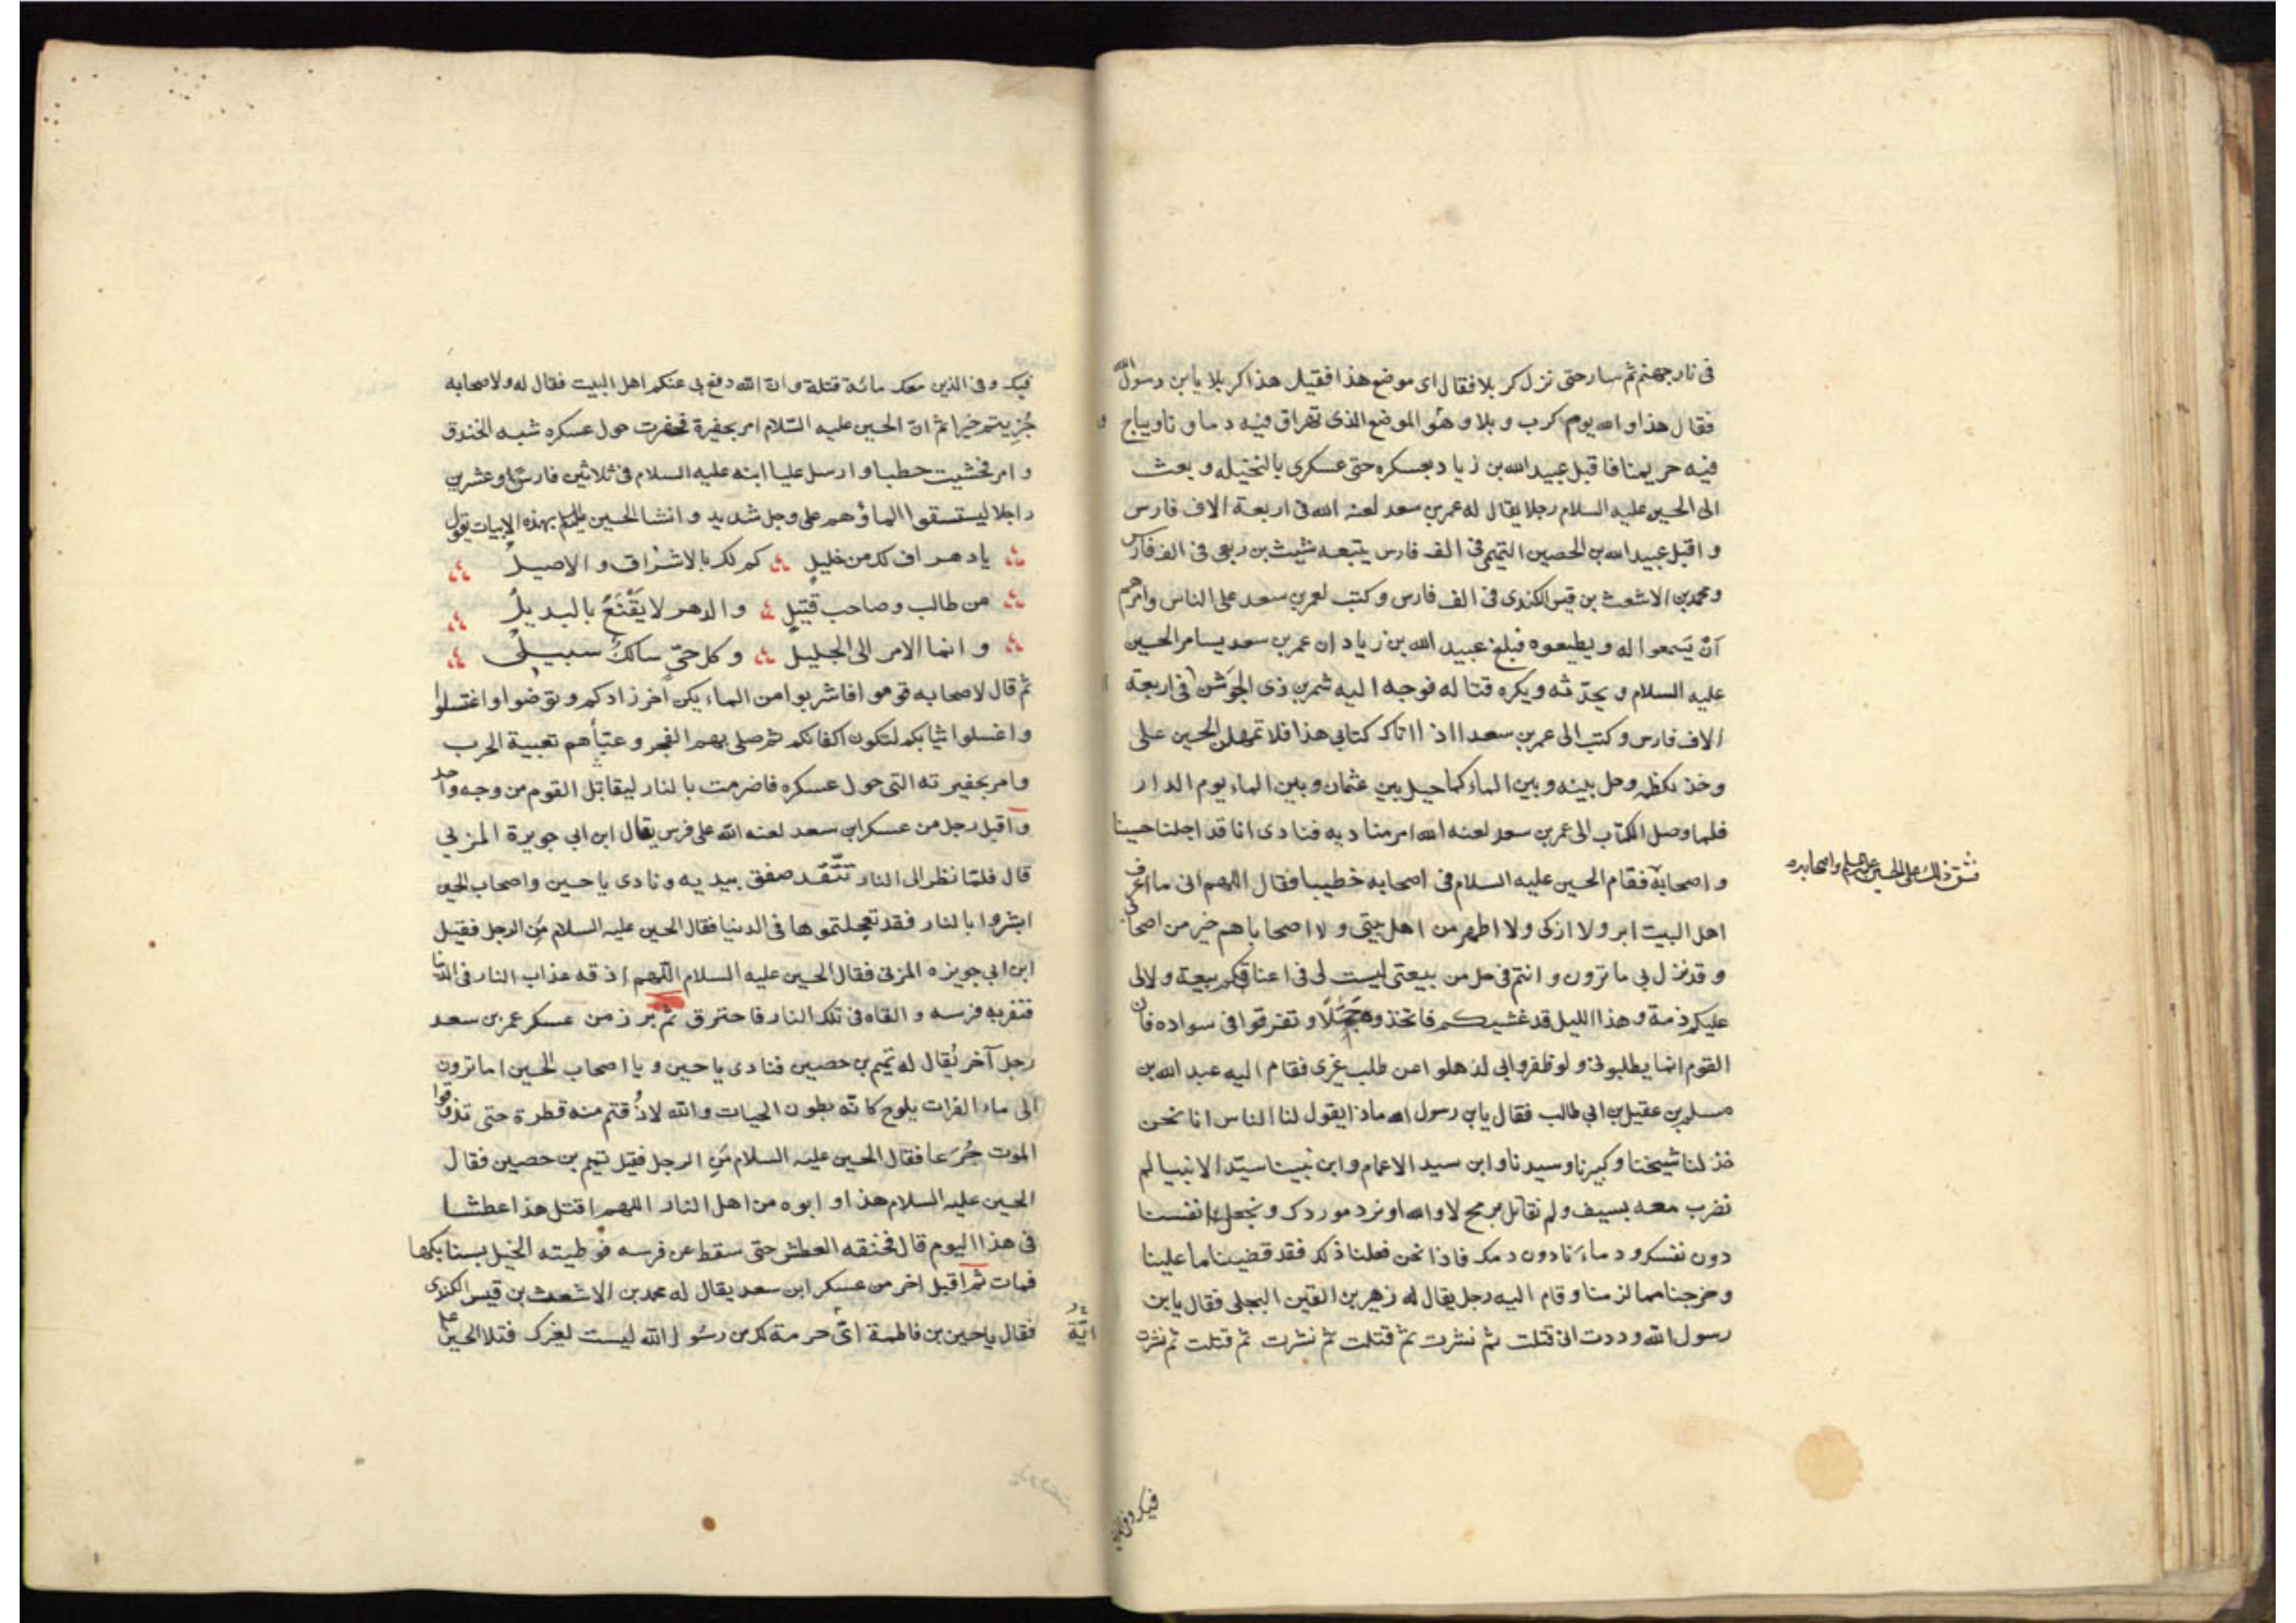 فى نار جهنم ثم سار حتى نزل كربلا فقال اى موضع هذا فقيل هذا كربلا يا بن رسول الله
فقال هذا والله يوم كرب و بلا و هو الموضع الذى تهراق فيه دماونا ويباح
فيه حريمنا فاقبل عبيد الله بن زياد بعسكره حتى عسكرى بالنخيله و بعث
الى الحسين عليه السلام رجلا يقال له عمر بن سعد لعنه الله فى اربعة الاف فارس
و اقبل عبيد الله بن الحصين التيمى فى الف فارس يتبعه شيث بن ربعى فى الف فارس
و محمد بن الاشعث بن قيس الكندى فى الف فارس وكتب لعمر بن سعد على الناس وامرهم
ان يسمعوا له و يطيعوه فبلغ عبيد الله بن زياد ان عمر بن سعد يسامر الحسين
عليه السلام و يحدّثه ويكره قتاله فوجه اليه شمر بن ذى الجَوشن فى اربعة
الاف فارس وكتب الى عمر بن سعد اذا اتاك كتابى هذا فلا تمهلن الحسين على
وخذ بكظمه وحل بينه و بين الماء كما حيل بين عثمان و بين الماء يوم الدار
فلما وصل الكتاب الى عمر بن سعد لعنه الله امر مناديه فنادى انا قد اجلنا حسينا
و اصحابه فقام الحسين عليه السلام فى اصحابه خطيبا فقال اللهم انى ما اعرف
فشق ذلك على الحسين عليه السلم و اصحابه
اهل البيت ابر ولا ازكى ولا اطهر من اهل بيتى و لا اصحابا هم خير من اصحابى
و قد نزل بى ما ترون و انتم فى حل من بيعتى ليست لى فى اعناقكم بيعة ولا لى
عليكم ذمة و هذا الليل قد غشيكم فاتخذوه جملا و تفرقوا فى سواده فان
القوم انما يطلبونى و لو ظفروا بى لذهلوا عن طلب غيرى فقام اليه عبد الله بن
مسلم بن عقيل بن ابى طالب فقال يا بن رسول الله ماذا يقول لنا الناس ان نحن
خذلنا شيخنا و كبيرنا وسيدنا و ابن سيد الاعمام و ابن نبينا سيّد الانبيا لم
نضرب معه بسيف و لم نقاتل برمح لا والله او نرد موردك و نجعل انفسنا
دون نفسك و دماءَنا دون دمك فاذا نحن فعلنا ذلك فقد قضينا ما علينا
و خرجنا مما لزمنا و قام اليه رجل يقال له زهير بن القين البجلى فقال يا بن
رسول الله وددت انى قتلت ثم نشرت ثم قتلت ثم نشرت ثم قتلت ثم نشرت
فيك وفى
فيك وفى الذين معك مائة قتلة و ان الله دفع بى عنكم اهل البيت فقال له ولاصحابه
جُزِيتم خيرا ثم ان الحسين عليه السّلام امر بحفيرة فحفرت حول عسكره شبه الخندق
و امر فحشيت حطبا و ارسل عليا ابنه عليه السلام فى ثلاثين فارسًا و عشرين
راجلا ليستسقوا الماؤهم على وجل شديد و انشا الحسين بهذه الابيات يقول
يا دهر اف لك من خليلٍ كم لك بالاشراق و الاصيلُ
من طالب و صاحب قتيلٍ و الدهر لا يَقْنَعُ بالبديلُ
و انما الامر الى الجليل و كل حىّ سالكٌ سبيلى
ثم قال لاصحابه قوموا فاشربوا من الماء يكن آخر زادكم و توضوا واغتسلوا
و اغسلوا ثيابكم لتكون اكفانكم ثم صلى بهم الفجر و عبّأهم تعبية الحرب
و امر بحفيرته التى حول عسكره فاضرمت بالنار ليقاتل القوم من وجه واحد
و اقبل رجل من عسكر ابن سعد لعنه الله على فرس يقال ابن ابى جويرة المزنى
قال فلمّا نظر الى النار تتّقد صفق بيديه و نادى يا حسين و اصحاب الحسين
ابشروا بالنار فقد تعجلتموها فى الدنيا فقال الحسين عليه السلام مَن الرجل فقيل
ابن ابى جويزه المزنى فقال الحسين عليه السلام اللّهم اذقه عذاب النار فى الدنا
فنفر به فرسه و القاه فى تلك النار فاحترق ثم برز من عسكر عمر بن سعد
رجل آخر يُقال له تميم بن حصين فنادى يا حسين و يا اصحاب الحسين اما ترون
الى ماء الفرات يلوح كانّه بطون الحيات و الله لا ذُقتم منه قطرة حتى تذوقوا
الموت جُرَعا فقال الحسين عليه السلام مَنِ الرجل فقيل تميم بن حصين فقال
الحسين عليه السلام هذا و ابوه من اهل النار اللهم اقتل هذا عطشا
فى هذا اليوم قال فخنقه العطش حتى سقط عن فرسه فوطيته الخيل بسنابكها
فمات ثم اقبل اخر من عسكر ابن سعد يقال له محمد بن الاشعث بن قيس الكندى
فقال يا حسين بن فاطمة اىّ حرمة لك من رسول الله ليست لغيرك فتلا الحسين